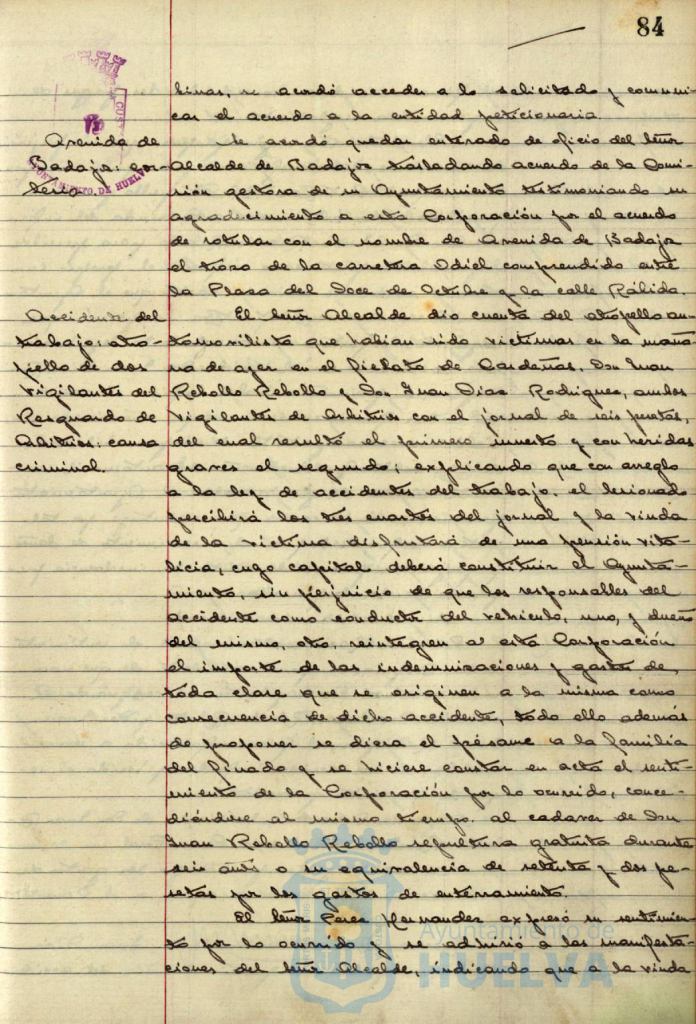 84
se acordó acceder a lo solicitado y comuni-
car el acuerdo a la entidad peticionaria.
Avenida de
Badajoz: cor-
tesia
Se acordó quedar enterado de oficio del Señor
Alcalde de Badajoz trasladando acuerdo de la Comi-
sión gestora de su Ayuntamiento testimoniando su
agradecimiento a esta Corporación por el acuerdo
de rotular con el nombre de Avenida de Badajoz
el trozo de la carretera Odiel comprendido entre
la Plaza del Doce de Octubre y la calle Rábida.
Accidente del
trabajo: atro-
pello de dos
vigilantes del
Resguardo de
Arbitrios: causa
criminal.
El Señor Alcalde dio cuenta del atropello au-
tomovilista que habian sido victimas en la maña-
na de ayer en el fielato de Cardeñas, Don Juan
Rebollo Rebollo y Don Juan Diaz Rodriguez, ambos
vigilantes de Arbitrios con el jornal de seis pesetas,
del cual resultó el primero muerto y con heridas
graves el segundo; explicando que con arreglo
a la ley de accidentes del trabajo, el lesionado
percibirá los tres cuartos del jornal y la viuda
de la victima disfrutará de una pensión vita-
licia, cuyo capital deberá constituir el Ayunta-
miento, sin perjuicio de que los responsables del
accidente como conductor del vehiculo, uno, y dueño
del mismo, otro, reintegren a esta Corporación
el importe de las indemnizaciones y gastos de
toda clase que se originen a la misma como
consecuencia de dicho accidente, todo ello además
de proponer se diera el pésame a la familia
del finado y se hiciere constar en acta el senti-
miento de la Corporación por lo ocurrido, conce-
diéndose al mismo tiempo al cadaver de Don
Juan Rebollo Rebollo sepultura gratuita durante
seis años o su equivalencia de setenta y dos pe-
setas por los gastos de enterramiento.
El Señor Perez Hernandez expresó su sentimien-
to por lo ocurrido y se adhirió a las manifesta-
ciones del Señor Alcalde, indicando que a la viuda
AYUNTAMIENTO DE HUELVA
Ayuntamiento de
HUELVA